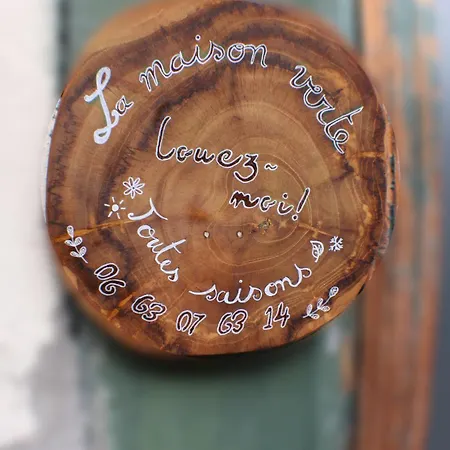 La maison verte
Louez-
moi!
Toutes saisons
06 63 07 63 14